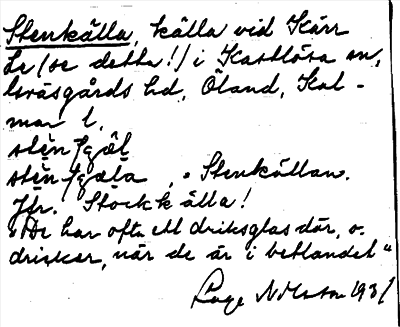 Stenkälla, källa vid Kärr
Le (se detta!) i Kastlösa sn,
Gräsgårds hd, Öland, Kal-
mar l.
Stenkällan.
Jfr. Stockkälla!
"De har ofta ett driksglas där, o.
drisker, när de är i betlandet"
Åage Nilsson 1931